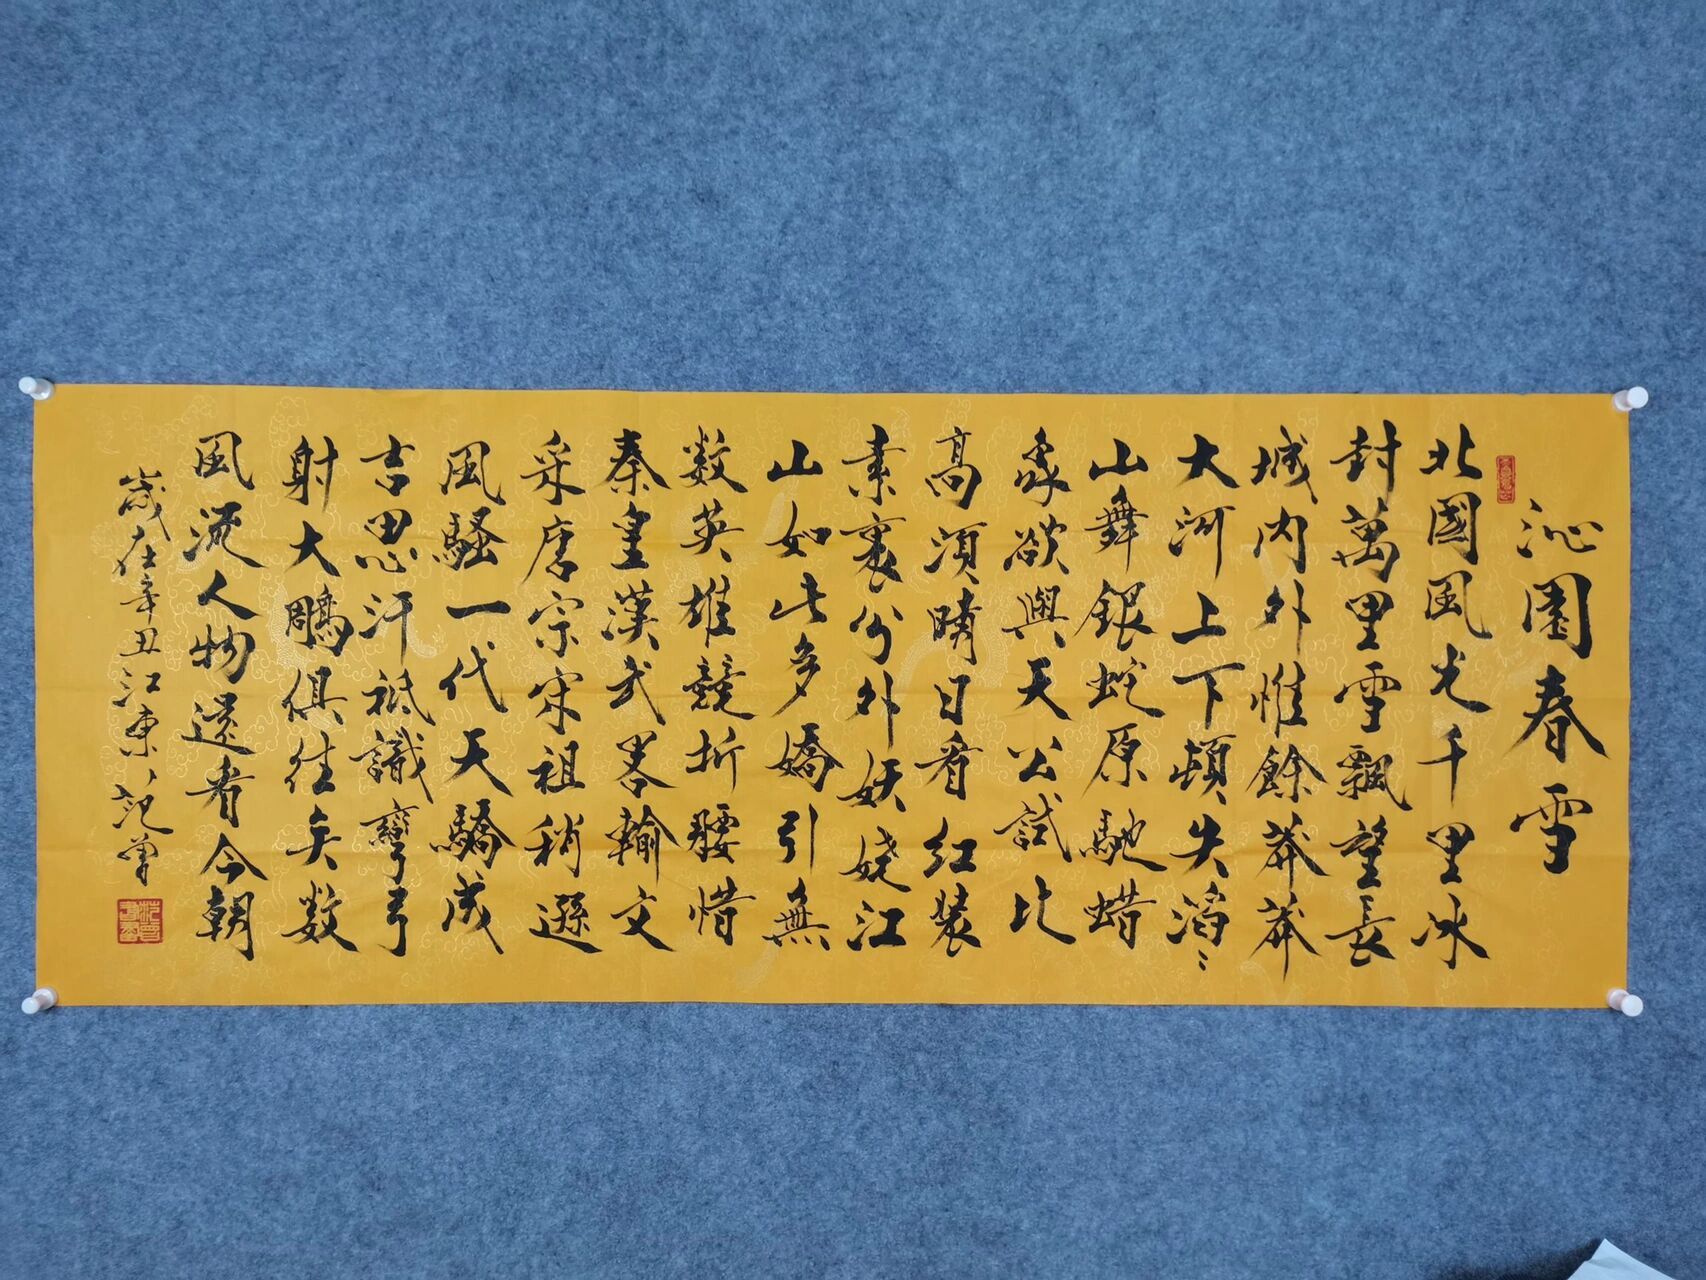 沁園春雪
北國風光千里冰
封萬里雪飄望長
城內外惟餘莽莽
大河上下頓失滔〻
山舞銀蛇原馳蜡
象欲與天公試比
高須晴日看紅裝
素裹分外妖嬈江
山如此多嬌引無
数英雄競折腰惜
秦皇漢武畧輸文
采唐宗宋祖稍遜
風騷一代天驕成
吉思汗祗識彎弓
射大鵰俱往矣数
風流人物還看今朝
歲在辛丑江東范曾